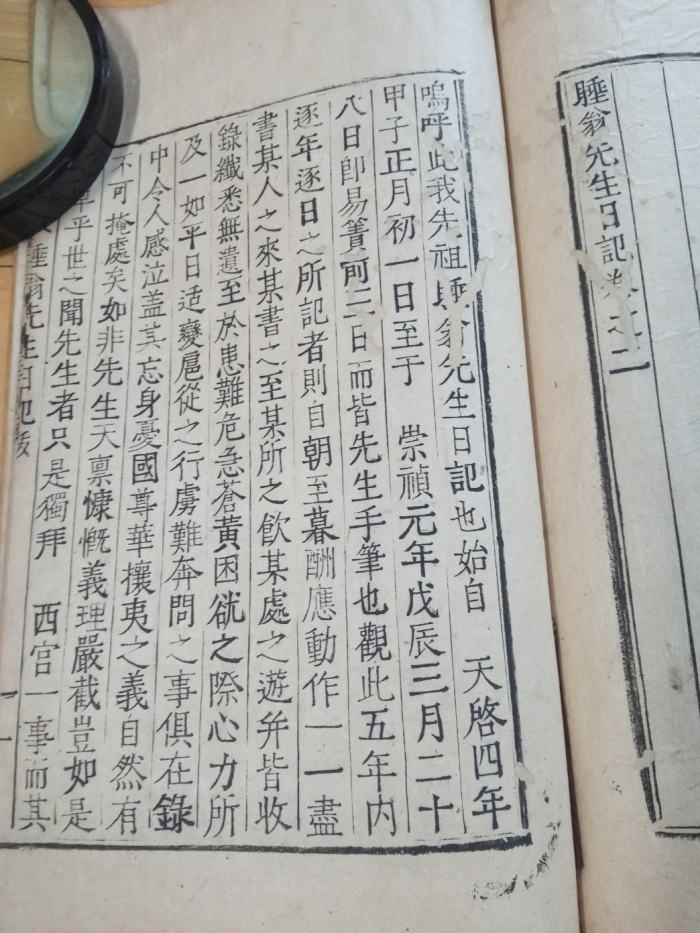 睡翁先生日記卷之二
嗚呼此我先祖睡翁先生日記也始自 天啓四年
甲子正月初一日至于 崇禎元年戊辰三月二十
八日卽易簀前二日而皆先生手筆也觀此五年內
逐年逐日之所記者則自朝至暮酬應動作一一盡
書某人之來某書之至某所之飮某處之遊幷皆收
錄纖悉無遺至於患難危急蒼黃困欲之際心力所
及一如平日适變扈從之行虜難奔問之事俱在錄
中令人感泣盖其忘身憂國尊華攘夷之義自然有
不可掩處矣如非先生天禀慷慨義理嚴截豈如是
乎世之聞先生者只是獨拜 西宮一事而其
睡翁先生日記跋